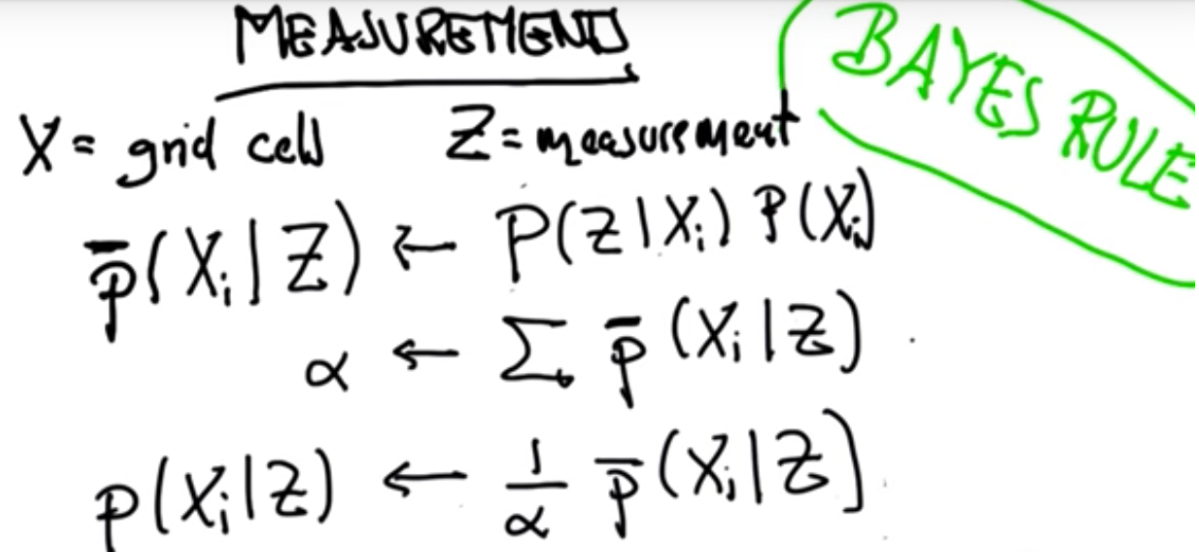 MEASUREMENT
BAYES RULE
X = grid cell Z = measurement
p̄(Xᵢ|Z) ← P(Z|Xᵢ) P(Xᵢ)
α ← Σ p̄(Xᵢ|Z)
p(Xᵢ|Z) ← 1/α p̄(Xᵢ|Z)